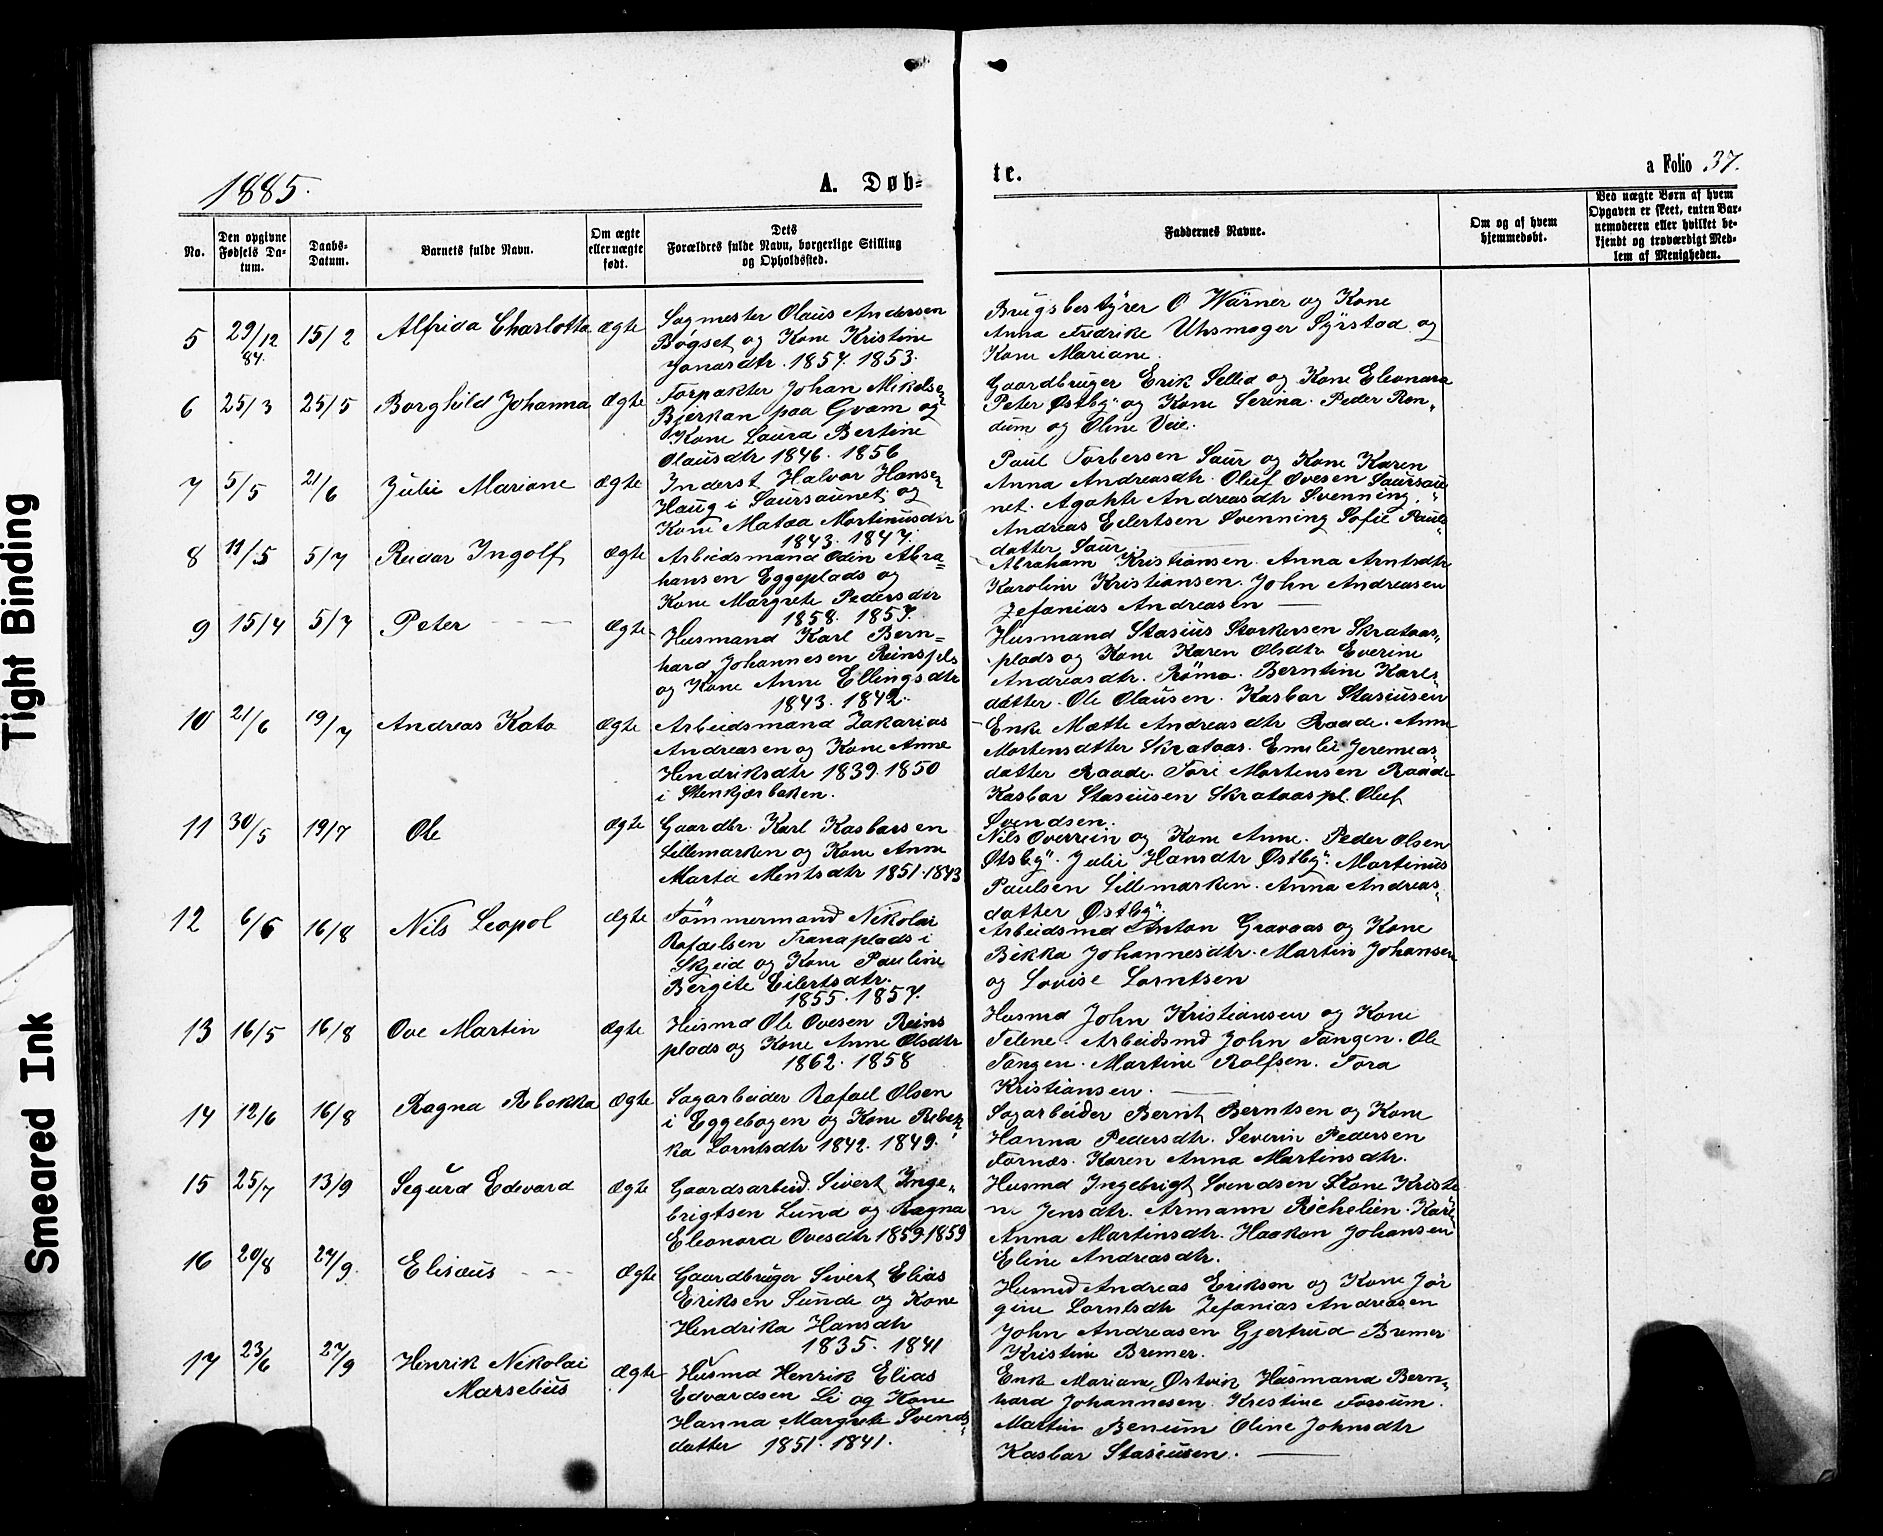 1885.
A. Døb-
te.
a Folio 37.
No.
Den opgivne
Fødsels Da-
tum.
Daabs-
Datum.
Barnets fulde Navn.
Om ægte
eller uægte
født.
Dets
Forældres fulde Navn, borgerlige Stilling
og Opholdssted.
Faddernes Navne.
Om og af hvem
hjemmedøbt.
Ved uægte Børn af hvem
Opgaven er skeet, enten Bar-
nemoderen eller hvilket be-
kjendt og troværdigt Med-
lem af Menigheden.
5 29/12 84. 15/2 Alfrida Charlotta ægte
Sagmester Olaus Andersen
Bøgset og Kone Kristine
Jonasdtr. 1857. 1853.
Brugsbestyrer O Wärner og Kone
Anna Fredrike Uhsmager Syrstad og
Kone Mariane.
6 25/3 25/5 Borghild Johanna ægte
Forpakter Johan Mikalse-
Bjerkan paa Gvam og
Kone Laura Bertine
Olausdtr 1846. 1856
Gaardbruger Erik Sellid og Kone Eleonara
Peter Østby og Kone Serina. Peder Ren-
dum og Oline Veie.
7 5/5 21/6 Julie Mariane ægte
Inderst Halvor Hanse-
Haug i Saursaunet og
Kone Matea Martinusdtr
1843. 1847.
Paul Torbersen Saur og Kone Karen
Anna Andreasdtr. Oluf Ovesen Saursau
net. Agathe Andreasdtr Svenning.
Andreas Eilertsen Svenning Sofie Pauls-
datter Saur.
8 11/5 5/7 Reidar Ingolf ægte
Arbeidsmand Odin Abra-
hansen Eggeplads og
Kone Margrete Pedersdtr
1858. 1857.
Abraham Kristiansen. Anna Arntsdtr
Karoline Kristiansen. John Andreasen
Zefanias Andreasen
9 15/4 5/7 Peter ægte
Husmand Karl Bern-
hard Johannesen Reinspls
og Kone Anne Ellingsdtr
1843. 1842.
Husmand Stasius Storkersen Skrataas-
plads og Kone Karen Olsdtr Everine
Andreasdtr. Rømo. Berntine Karls-
datter. Ole Olausen. Kasbar Stasiusen
10 21/6 19/7 Andreas Kato ægte
Arbeidsmand Zakarias
Andreasen og Kone Anne
Hendriksdtr 1839. 1850
i Stenkjærbaken.
Enke Mætte Andreasdtr Raade. Anne
Mortensdatter Skrataas. Emilie Jeremias
datter Raade. Tore Mortensen Raade
Kasbar Stasiusen Skrataas pl. Oluf
Svendsen.
11 30/5 19/7 Ole ægte
Gaardbr. Karl Kasbarsen
Lillemarken og Kone Anne
Marta Mentsdtr 1851. 1843
Nils Overrein og Kone Anne. Peder Olsen
Østby. Julie Hansdtr Østby. Martinus
Paulsen Lillemarken. Anna Andreas-
datter Østby.
12 6/6 16/8 Nils Leopol ægte
Tømmermand Nikolai
Rafaelsen Tranaplads i
Skjeid og Kone Pauline
Bergite Eilertsdtr.
1855. 1857.
Arbeidsmd Anton Gravaas og Kone
Bekka Johannesdtr. Martin Johansen
og Lovise Lorntsen
13 16/5 16/8 Ove Martin ægte
Husmd Ole Ovesen Reins
plads og Kone Anne Olsdtr
1862. 1858
Husmd John Kristiansen og Kone
Telene. Arbeidsmd John Tangen. Ole
Tangen. Martine Rolfsen. Tora
Kristiansen.
14 12/6 16/8 Ragna Rebekka ægte
Sagarbeider Rafael Olsen
i Eggebogen og Kone Rebek-
ka Lorntsdtr 1842. 1849.
Sagarbeider Bernt Berntsen og Kone
Hanna Pedersdtr. Severin Pedersen
Fornæs. Karen Anna Martinsdtr.
15 25/7 13/9 Segurd Edvard ægte
Gaardsarbeid. Sivert Inge-
brigtsen Lund og Ragna
Eleonora Ovesdtr 1859. 1859
Husmd Ingebrigt Svendsen Kone Kriste
ne Jensdtr. Armann Richelien. Kar-
Anna Martinsdtr. Haakon Johansen
Eline Andreasdtr.
16 20/8 27/9. Elisæus ægte
Gaardbruger Sivert Elias
Eriksen Sunde og Kone
Hendrika Hansdtr
1835. 1841
Husmd Andreas Eriksen og Kone Jør
gine Lorntsdtr Zefanias Andreasen
John Andreasen Gjertrud Bremer
Kristine Bremer.
17 23/6 27/9 Henrik Nikolai
Marselius ægte
Husmd Henrik Elias
Edvardsen Li og Kone
Hanna Margrete Svends-
datter 1851. 1841.
Enke Mariane Østvik Husmand Bern-
hard Johannesen. Kristine Fossum.
Martin Benum Oline Johnsdtr
Kasbar Stasiusen.
Tight Binding
Smeared Ink